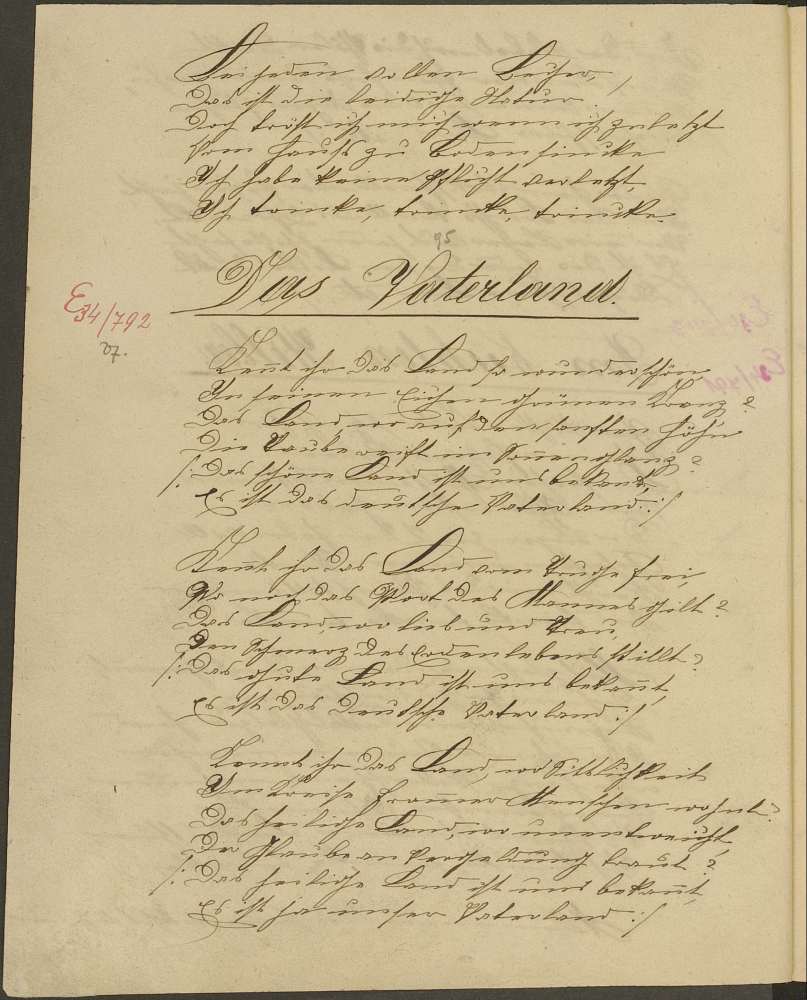 Bei jedem vollen Becher,
Das ist die leidige Natur
Doch tröst ich mich wenn ich zuletzt
Vom Hauß zu Boden sincke
Ich habe keine Pflicht verletzt,
Ich trincke, trincke, trincke.
95
Das Vaterland.
E34/792
27.
Kent ihr das Land so wunderschön
In seinen Eichen grünen Kranz?
Das Land wo auf den sanften Höh'n
Die Traube reift im Sonnenglanz?
/: Das schöne Land ist uns bekant,
Es ist das deutsche Vaterland. :/
Kent ihr das Land vom Truge frei,
Wo noch das Wort des Mannes gilt?
Das Land, wo Lieb und Treu,
Den Schmerz des Erdenlebens stillt?
/: Das gute Land ist uns bekannt,
Es ist das Deutsche Vaterland :/
Kennt ihr das Land, wo Sittlichkeit
Im Kreise frommer Menschen wohnt?
Das heilige Land, wo unentweicht,
Der Glaube an Vergeldung traut?
/: Das heilige Land ist uns bekannt,
Es ist ja unser Vaterland :/